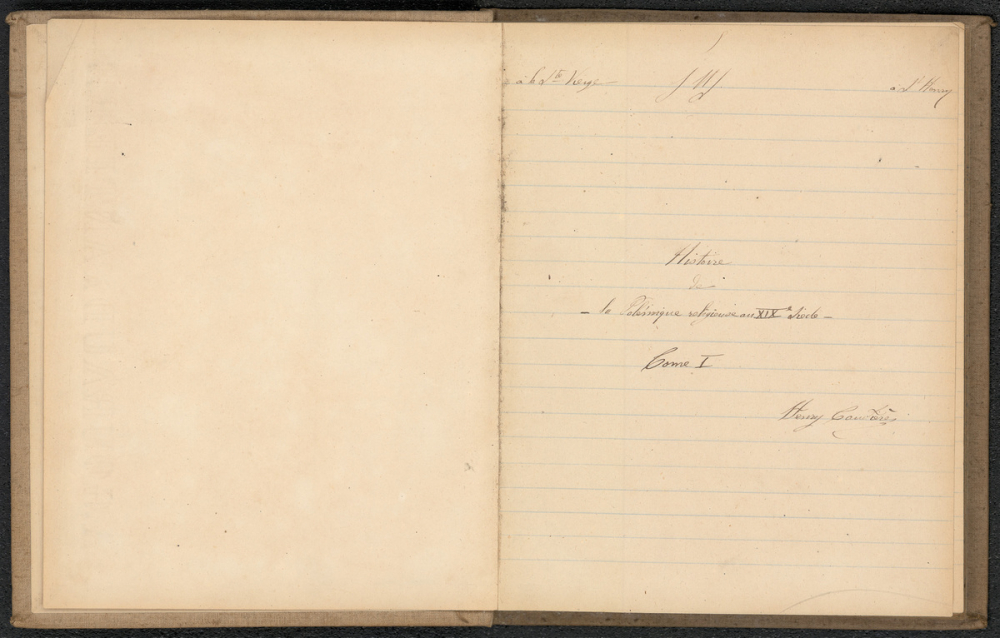 à la Ste Vierge JMJ à St Henry
Histoire
de
- la Polémique religieuse au XIXe siècle -
Tome I
Henry